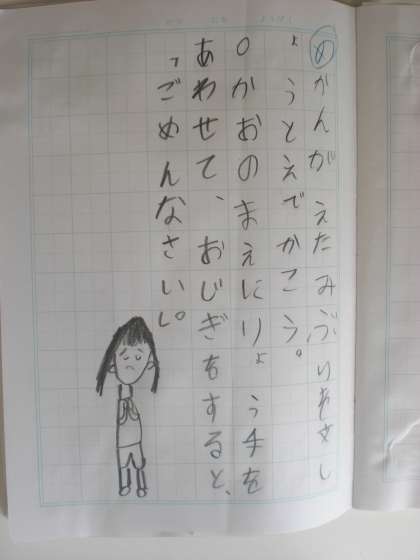 めかんがえたみぶりを文し
ょうとえでかこう。
○かおのまえにりょう手を
あわせて、おじぎをすると、
「ごめんなさい」。